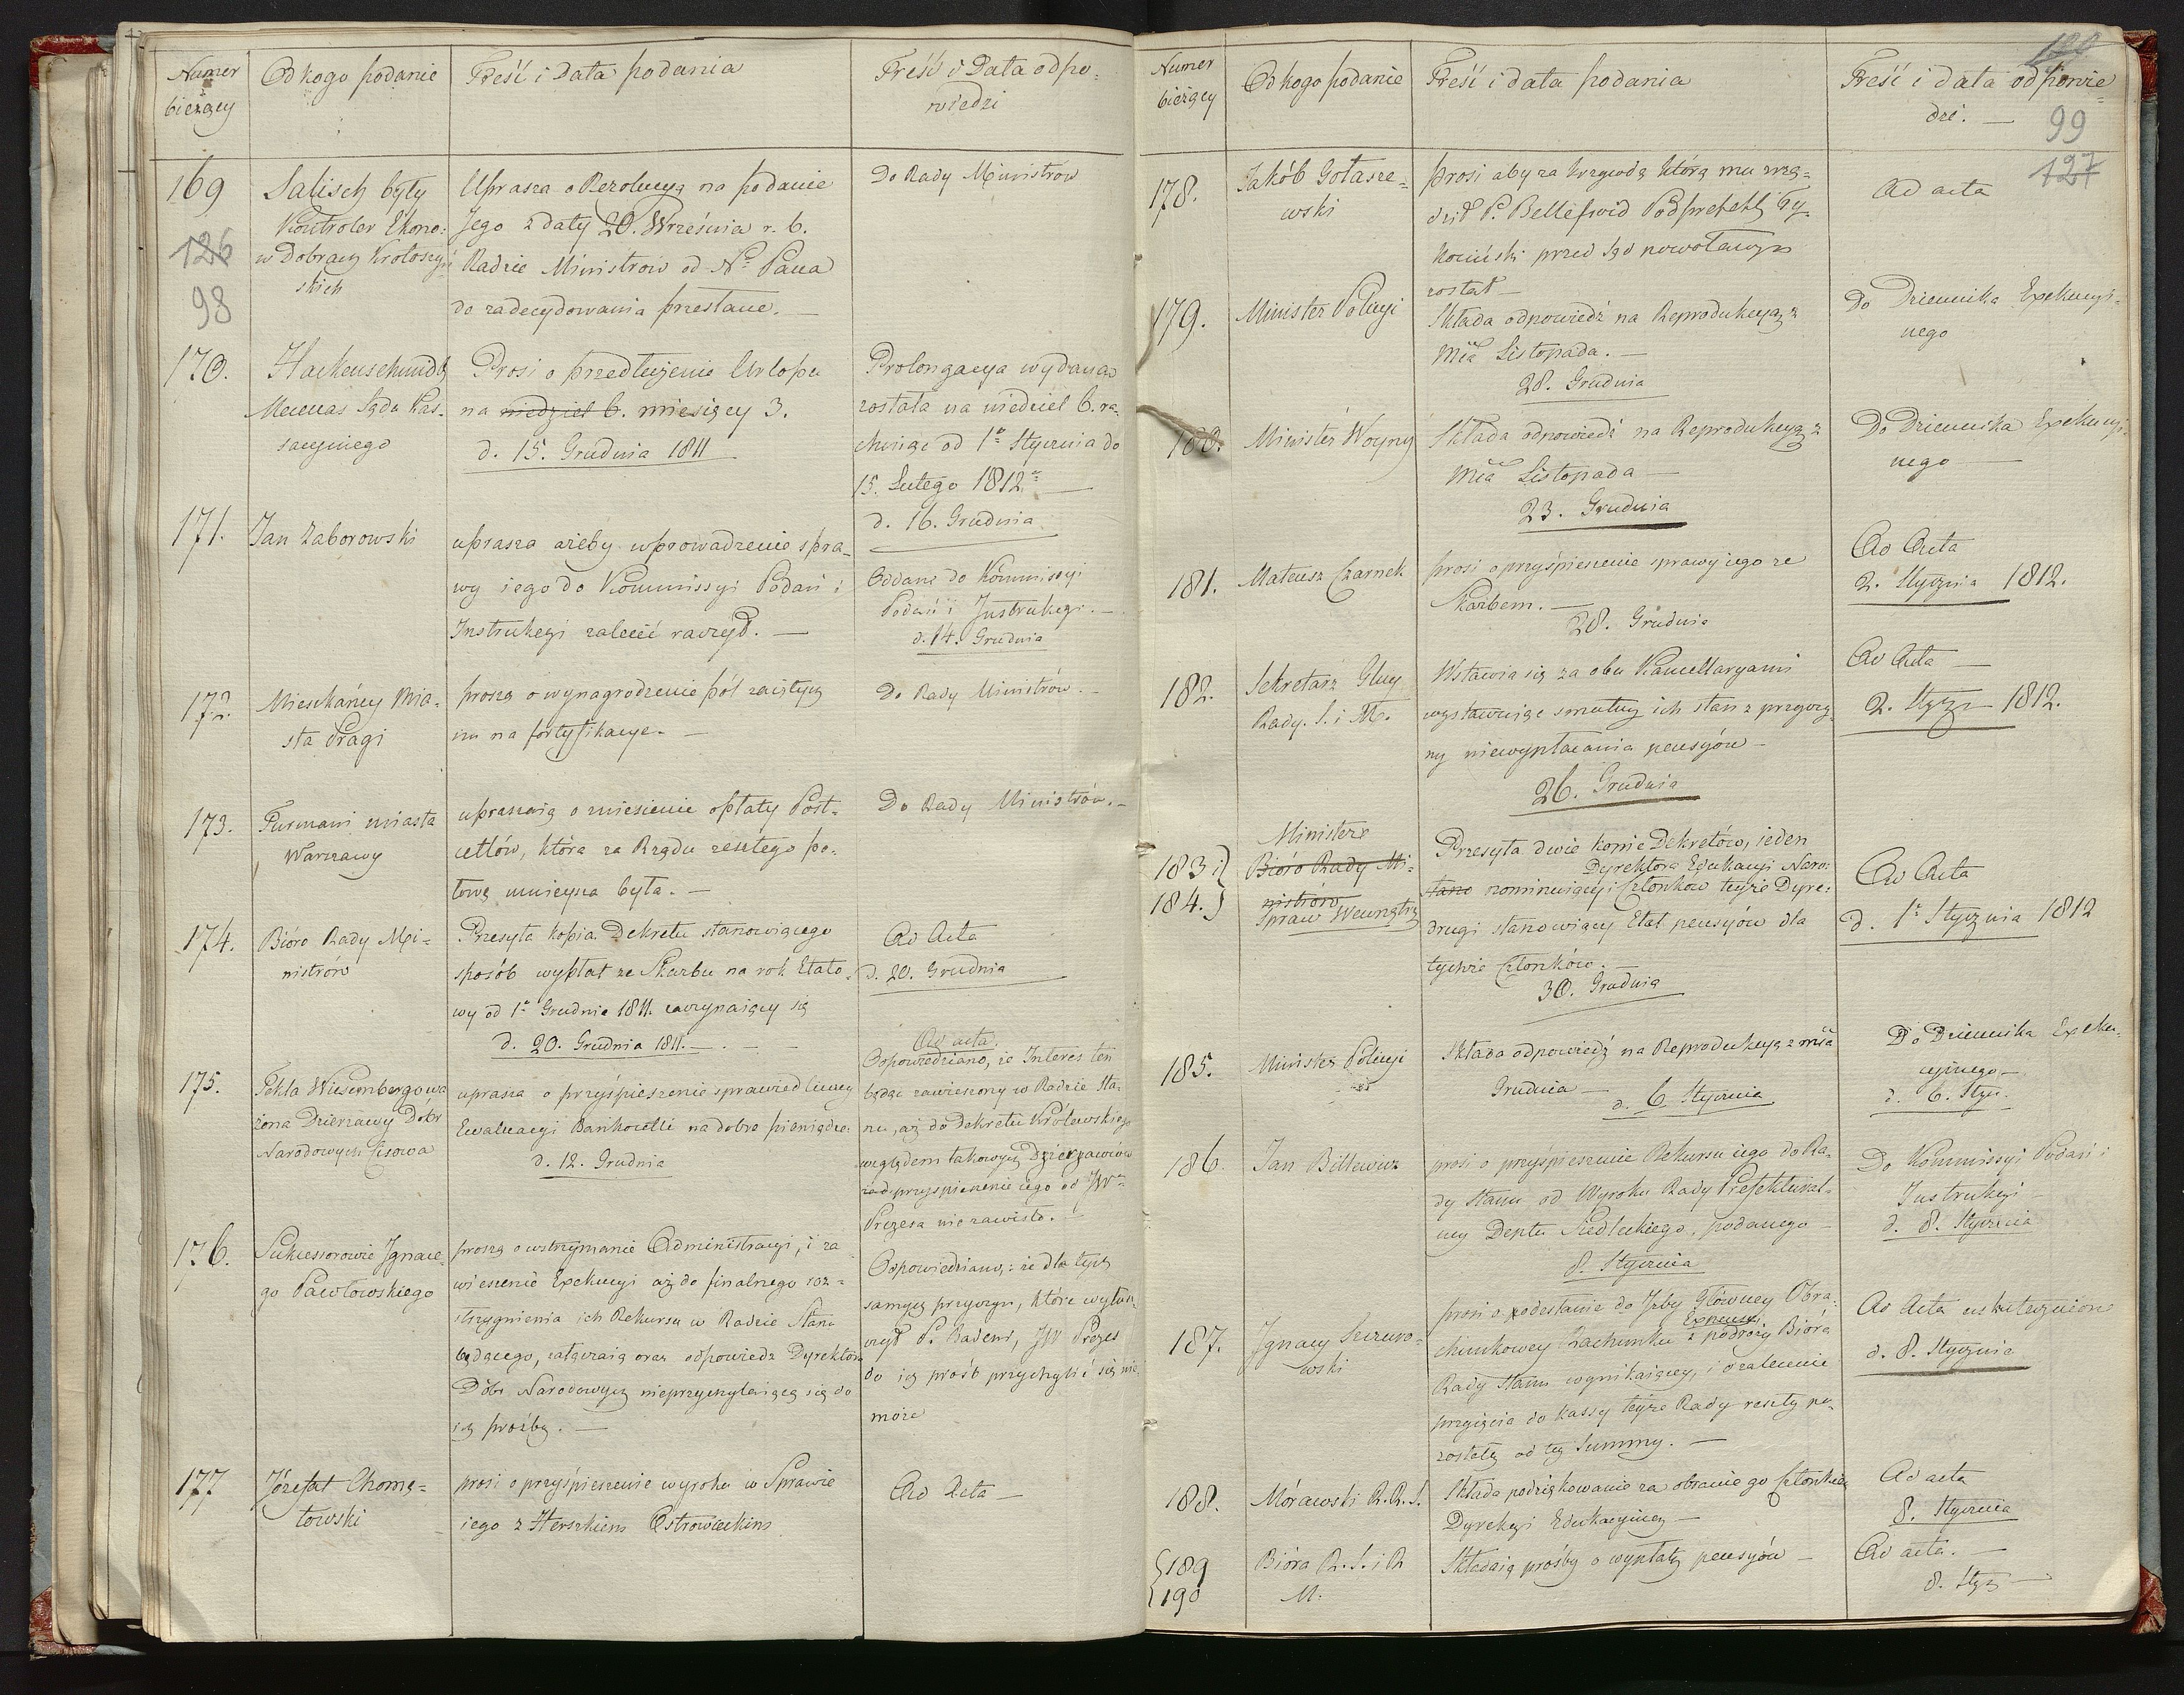 Numer
bieżący
Od kogo podanie
Treść i Data podania
Treść i Data odpo=
wiedzi
169
126
98
Salisch były
Kontroler Ekono:
w Dobrach Krotoszyń
skich
Uprasza o Rezolucyą na podanie
Jego z daty 20. Września r. b.
Radzie Ministrow od No Pana
do zadecydowania przesłane. —
Do Rady Ministrow
170.
Hackenschmidt
Mecenas Sądu Kas-
sacyinego
Prosi o przedłużenie Urlopu
na niedziel 6. miesięcy 3.
d. 15. Grudnia 1811
Prolongacya wydana
została na niedziel 6. ra-
chuiąc od 1o Stycznia do
15. Lutego 1812 —
d. 16. Grudnia
171.
Jan Zaborowski
uprasza ażeby wprowadzenie spra-
wy iego do Kommissyi Podań i
Instrukcyi zalecić raczył. —
Oddane do Kommissyi
Podań i Instrukcyi. —
d. 14. Grudnia
172.
Mieszkańcy Mia-
sta Pragi
proszą o wynagrodzenie pól zaiętych
im na fortyfikacye. —
Do Rady Ministrów. —
173.
Furmani miasta
Warszawy
upraszaią o zniesienie opłaty Post-
cetlów, która za Rządu zeszłego po-
łową mnieysza była. —
Do Rady Ministrów. —
174.
Bióro Rady Mi-
nistrów
Przesyła kopią Dekretu stanowiącego
sposób wypłat ze Skarbu na rok Etato-
wy od 1o Grudnia 1811. zaczynaiący się
d. 20. Grudnia 1811. —
Ad Acta
d. 20. Grudnia
175.
Tekla Wiesenbergowa
żona Dzierżawcy Dobr
Narodowych Cisowa
uprasza o przyśpieszenie sprawiedliwey
Ewaluacyi Bankocetli na dobre pieniądze.
d. 12. Grudnia
Ad acta.
Odpowiedziano, że Interes ten
będąc zawieszony w Radzie Sta-
nu, aż do Dekretu Królewskiego
względem takowych Dzierżawców
zad przyspieszenie iego od JW
Prezesa nie zawisło. —
176.
Sukcessorowie Ignace-
go Pawłowskiego
proszą o wstrzymanie Administracyi, i za
wieszenie Exekucyi aż do finalnego roz-
strzygnienia ich Rekursu w Radzie Stanu
będącego, załączaią oraz odpowiedz Dyrektora
Dóbr Narodowych nieprzychylaiącą się do
ich prośby. —
Odpowiedziano, że dla tych
samych przyczyn, które wytłu-
czył P. Badeni, JW Prezes
do ich prośb przychylić się nie
może
177
Józefat Chomę-
towski
prosi o przyśpieszenie wyroku w Sprawie
iego z Herszkiem Ostrowieckim
Ad Acta —
Numer
bieżący
Od kogo podanie
Treść i data podania
Treść i data odpowie=
dzi. —
99
127
178.
Jakób Gołasze-
wski
prosi aby za krzywdę którą mu wrzą-
dził P. Bellefroid Podprefekt Ty-
kociński przed Sąd powołanym
został —
Ad acta
179.
Minister Policyi
Składa odpowiedź na Reprodukcyą z
Mca Listopada. —
28. Grudnia
Do Dziennika Exekucyi-
nego
180.
Minister Woyny
Składa odpowiedź na Reprodukcyą z
Mca Listopada —
23. Grudnia
Do Dziennika Exekucyi-
nego —
181.
Mateusz Czarnek
prosi o przyśpieszenie sprawy iego ze
Skarbem. —
28. Grudnia
Ad Acta
2. Stycznia 1812.
182.
Sekretarz Glny
Rady. S. i M.
Wstawia się za obu Kancellaryami
wystawuiąc smutny ich stan z przyczy-
ny niewypłacania pensyów —
26. Grudnia
Ad Acta —
2. Stycz 1812.
183 i
184.
Ministre
Bióro Rady Mi-
nistrów
Spraw Wewnętrz
Przesyła dwie kopie Dekretów, ieden
Dyrektora Edukacyi Naro:
nominuiący i Członków teyże Dyre:
drugi stanowiący Etat pensyów dla
tychże Członków. —
30. Grudnia
Ad Acta
d. 1o Stycznia 1812
185.
Minister Policyi
Składa odpowiedź na Reprodukcyą z mca
Grudnia —
d. 6 Stycznia
Do Dziennika Exeku-
cyinego —
d. 6. Stycz.
186.
Jan Billewicz
prosi o przyśpieszenie Rekursu iego do Ra-
dy Stanu od Wyroku Rady Prefektural-
ney Deptu Siedleckiego, podanego —
8. Stycznia
Do Kommissyi Podań i
Instrukcyi —
d. 8. Stycznia
187.
Ignacy Szczuro-
wski
prosi o podesłanie do Izby Główney Obra-
chunkowey Rachunku z podróży Bióra
Expensy
Rady Stanu wynikaiącey, i o zalecenie
przyięcia do Kassy teyże Rady reszty po-
zostałey od tey Summy. —
Ad Acta uskutecznione
d. 8. Stycznia
188.
Mórawski R. R. S.
Składa podziękowanie za obranie go Członkiem
Dyrekcyi Edukacyiney —
Ad acta
8. Stycznia
189
190
Bióra R. S. i R
M.
Składaią prośby o wypłatę pensyów —
Ad acta. —
8. Stycz —